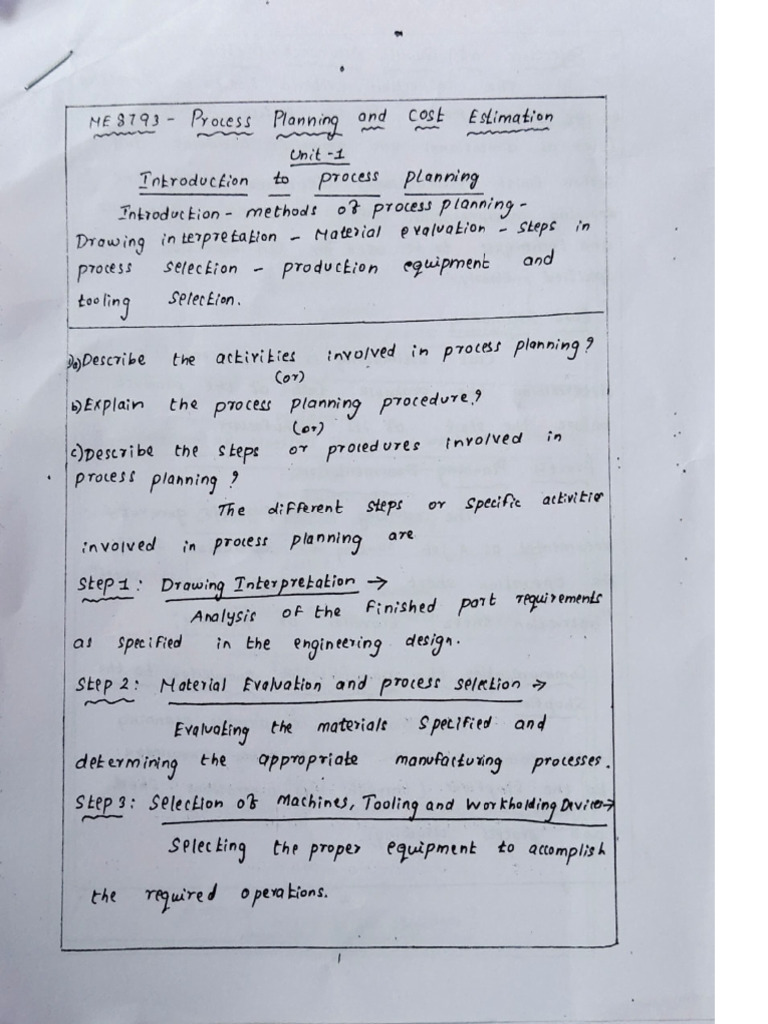 ME8793 - Process Planning and Cost Estimation
Unit -1
Introduction to process planning
Introduction - methods of process planning -
Drawing interpretation - Material evaluation - steps in
process selection - production equipment and
tooling selection.
1)a) Describe the activities involved in process planning?
(or)
b) Explain the process planning procedure?
(or)
c) Describe the steps or procedures involved in
process planning?
The different steps or specific activities
involved in process planning are
Step 1: Drawing Interpretation →
Analysis of the finished part requirements
as specified in the engineering design.
Step 2: Material Evaluation and process selection →
Evaluating the materials specified and
determining the appropriate manufacturing processes.
Step 3: Selection of Machines, Tooling and Workholding Devices →
Selecting the proper equipment to accomplish
the required operations.
1